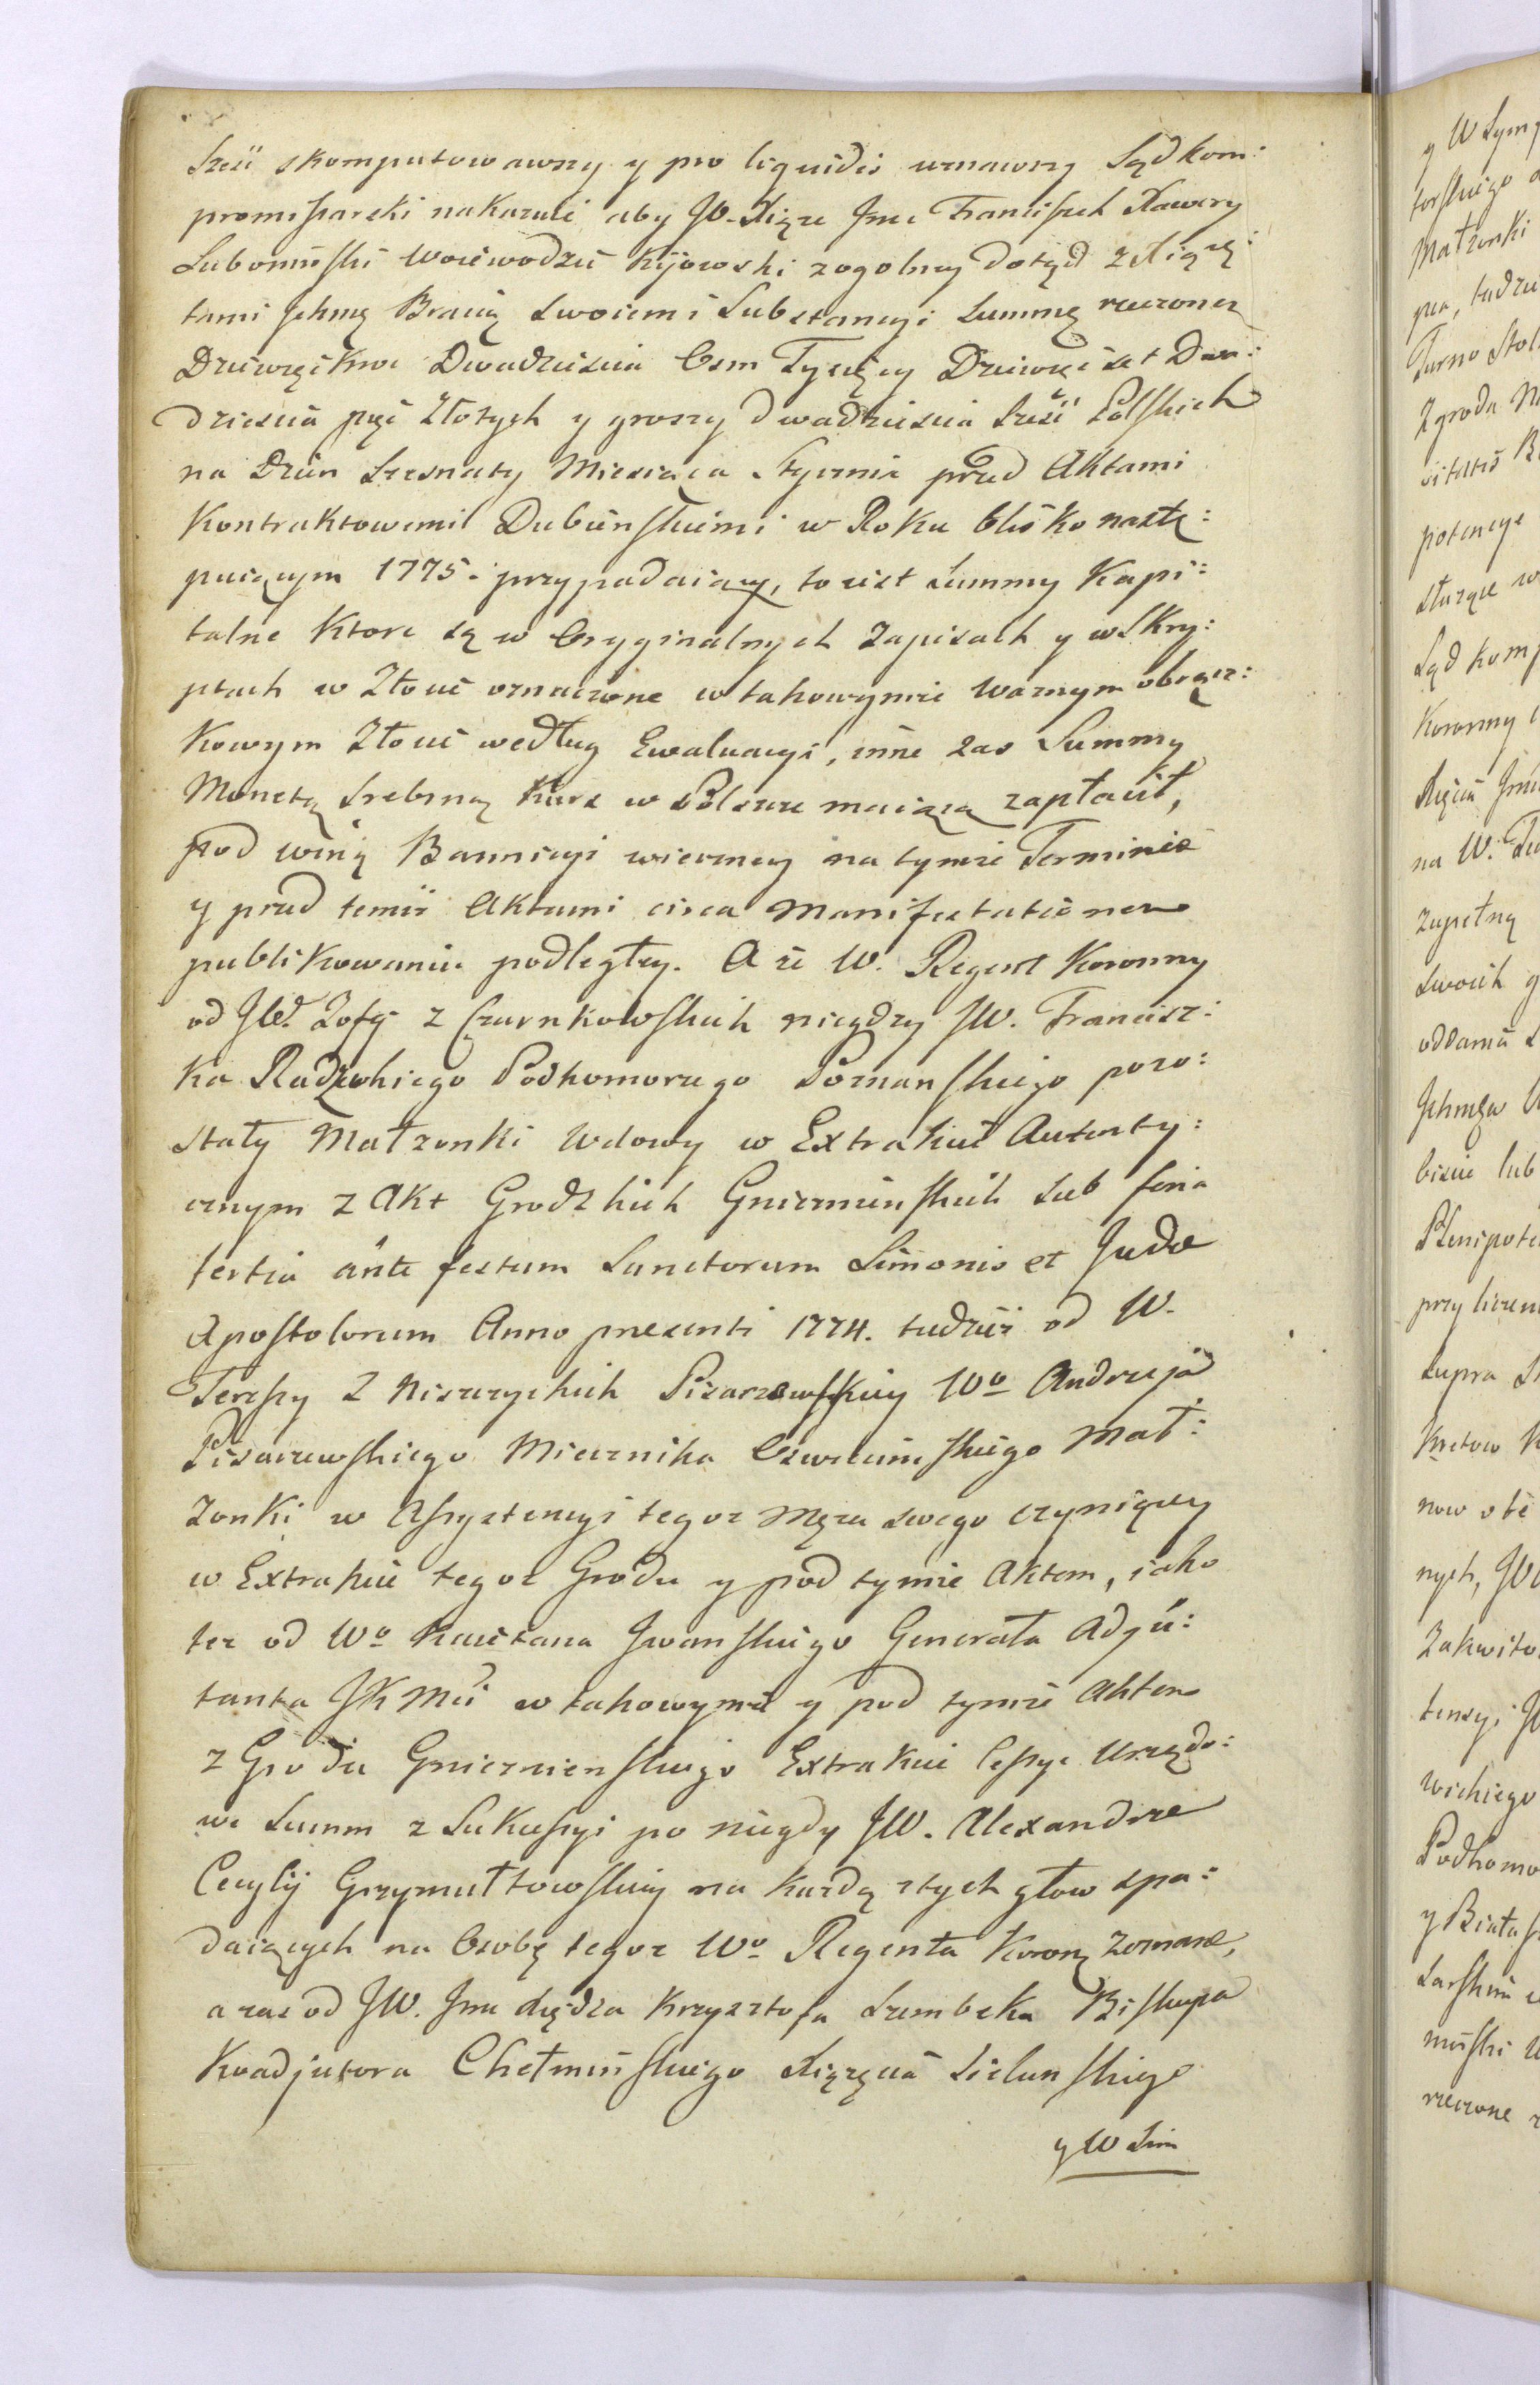 Sześć skomputowawszy y pro liquidis uznawszy Sąd kom:
promissarski nakazuie aby JW. Xiąze Jmc Franciszek Xawery
Lubomirski Woiewodzic Kijowski zogolney dotąd z Xiązę:
tami Jchmę Bracią Swoiemi Substancyi Summę rzeczoney
Dziewięckroc Dwadziescia Osm Tysięcy Dziewięcset Dwa:
dziescia pięć Złotych y groszy dwadziescia Sześć Polskich
na Dzień Szesnasty Miesiąca Stycznia przed Aktami
Kontraktowemi Dubienskiemi w Roku blisko nastę:
puiącym 1775. przypadaiący, to iest Summy Kapi:
talne Ktore są w Oryginalnych Zapisach y w Skry:
ptach w Złocie oznaczone w takowymże Waznym obrącz:
kowym Złocie według Ewaluacyi, inne zas Summy
Monetą Srebrną Kurs w Polszcze maiącą zapłacił,
pod winą Bannicyi wieczney na tymże Terminie
y przed temiż Aktami circa Manifestationem
publikowaniu podległey. A że W. Regent Koronny
od JW. Zofij z Czarnkowskich niegdy JW. Francisz:
ka Radzewskiego Podkomorzego Poznanskiego pozo:
stały Małzonki Wdowy w Extrakcie Autenty:
cznym z Akt Grodzkich Gnieznienskich sub feria
tertia ante festum Sanctorum Simonis et Judæ
Apostolorum Anno præsenti 1774. tudzież od W.
Teressy z Niszczyckich Pisarzewskiey Wo Andrzeja
Pisarzewskiego Miecznika Oswiecimskiego Mał:
zonki w Assystencyi tegoz Męza swego czyniącey
w Extrakcie tegoz Grodu y pod tymże Aktem, iako
tez od Wo Kaietana Jwanskiego Generała Adju:
tanta JKMci w takowymże y pod tymże Aktem
z Grodu Gnieznienskiego Extrakcie Cessye Urzędo:
we Summ z Sukcessyi po niegdy JW. Alexandrze
Cecylij Grzymułtowskiey na każdą z tych głow spa:
daiących na Osobę tegoz Wo Regenta Koronę zeznane,
a zas od JW. Jmc Xiędza Krzysztofa Szembeka Biskupa
Koadjutora Chełminskiego Xięzęcia Sielunskiego
y W Sim